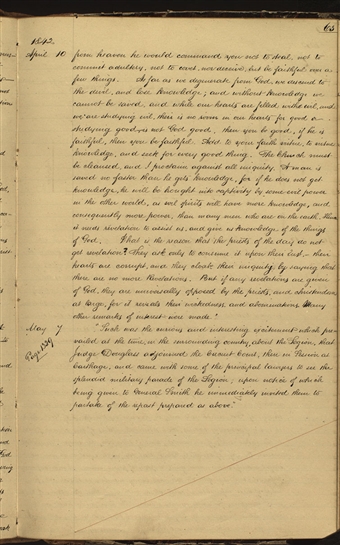 63
1842
April 10 from heaven he would command you not to steal, not to
commit adultery, not to covet, nor deceive, but be faithful over a
few things. As far as we degenerate from God, we descend to
the devil, and lose knowledge, and without knowledge we
cannot be saved, and while our hearts are filled with evil, and
we are studying evil, there is no room in our hearts for good or
studying good, is not God good, then you be good, if he is
faithful, then you be faithful. Add to your faith virtue, to virtue
knowledge, and seek for every good thing. The Church must
be cleansed, and I proclaim against all iniquity. A man is
saved no faster than he gets knowledge, for if he does not get
knowledge, he will be brought into captivity by some evil power
in the other world, as evil spirits will have more knowledge, and
consequently more power, than many men who are on the earth. Hence
it needs revelation to assist us, and give us knowledge of the things
of God. What is the reason that the priests of the day do not
get revelation? They ask only to consume it upon their lust, their
hearts are corrupt, and they cloak their iniquity by saying that
there are no more Revelations. But if any revelations are given
of God, they are universally opposed by the priests, and christendom
at large, for it reveals their wickedness and abominations. Many
other remarks of interest were made."
May 7 "Such was the curious and interesting excitement which pre-
Page 1329 vailed at the time, in the surrounding country, about the Legion, that
Judge Douglass adjourned the Circuit Court, then in Session at
Carthage, and came with some of the principal lawyers to see the
splendid military parade of the Legion; upon notice of which
being given to General Smith he immediately invited them to
partake of the repast prepared as above."